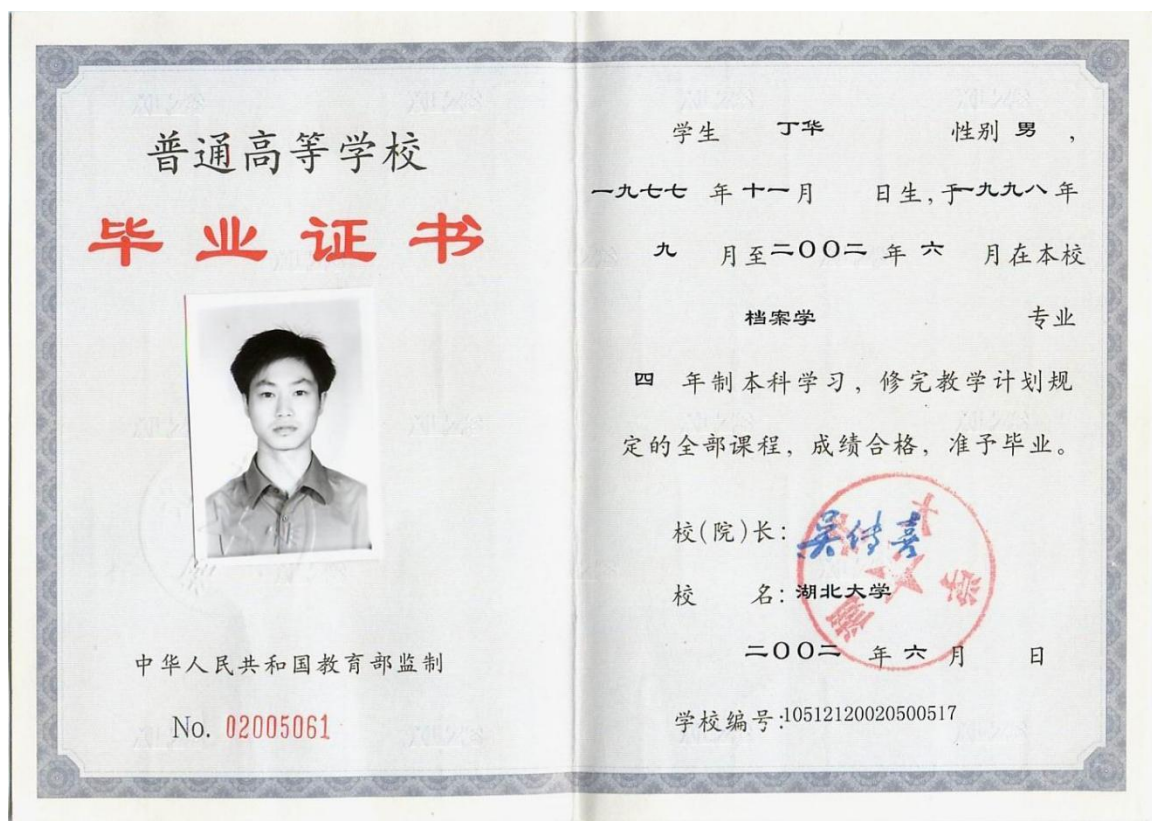 普通高等学校
毕业证书
中华人民共和国教育部监制
No. 02005061
学生 丁华 性别 男 ,
一九七七 年 十一 月 日生, 于 一九九八 年
九 月至 二〇〇二 年 六 月在本校
档案学 专业
四 年制本科学习, 修完教学计划规
定的全部课程, 成绩合格, 准予毕业。
校(院)长: 吴传喜
校 名: 湖北大学
二〇〇二 年 六 月 日
学校编号:10512120020500517
湖北大学